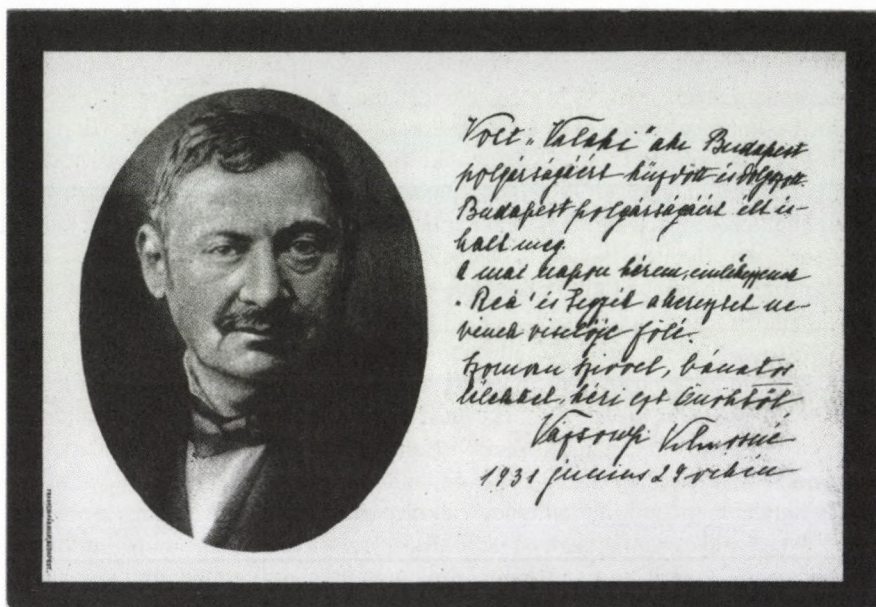 Volt „Valaki” aki Budapest
polgárságáért küzdött és dolgozott.
Budapest polgárságáért élt és
halt meg.
A mai napon kérem, emlékezzenek
„Reá” és tegyék a keresztet ne-
vének viselője fölé.
szivvel, bánatos
lélekkel, kéri ezt Önöktől
Vázsonyi Vilmosné
1931 junius 29 ikén